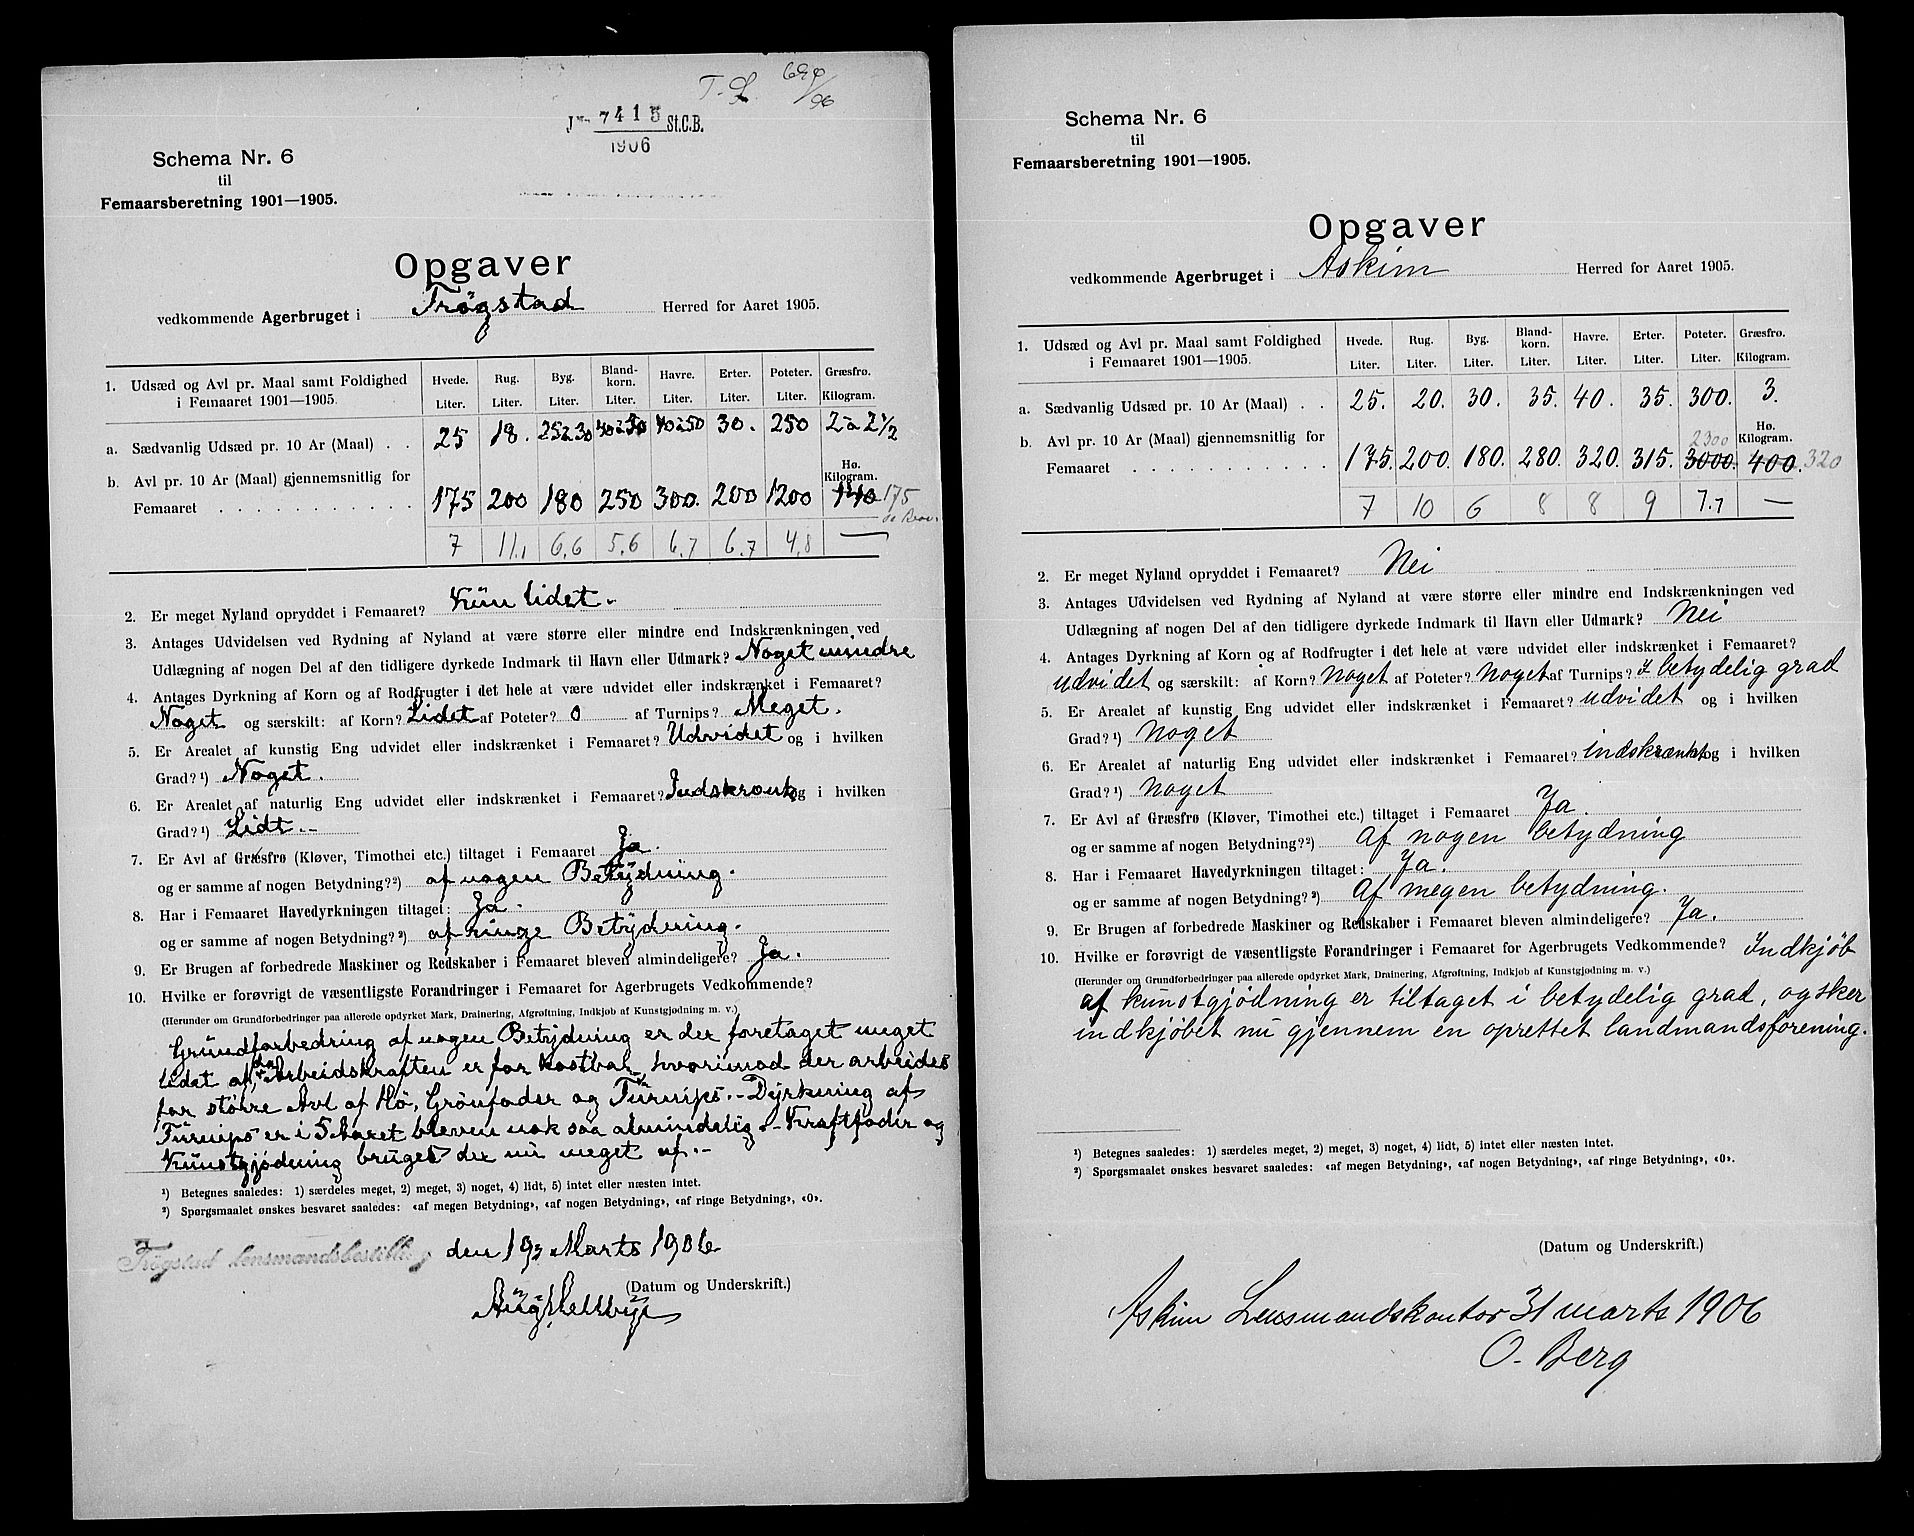 T. L. 690/96
J. No. 7415 St.C.B.
1906
Schema Nr. 6
til
Femaarsberetning 1901—1905.
Opgaver
vedkommende Agerbruget i Trögstad Herred for Aaret 1905.
1. Udsæd og Avl pr. Maal samt Foldighed i Femaaret 1901—1905. | Hvede. Liter. | Rug. Liter. | Byg. Liter. | Blandkorn. Liter. | Havre. Liter. | Erter. Liter. | Poteter. Liter. | Græsfrø. Kilogram.
a. Sædvanlig Udsæd pr. 10 Ar (Maal) . . | 25 | 18. | 25 à 30 | 40 à 50 | 40 à 50 | 30. | 250 | 2 à 2 1/2
Hø. Kilogram.
b. Avl pr. 10 Ar (Maal) gjennemsnitlig for
Femaaret . . . . . . . . . . . | 175 | 200 | 180 | 250 | 300. | 200 | 1200 | 140 175
7 | 11,1 | 6,6 | 5,6 | 6,7 | 6,7 | 4,8 | —
2. Er meget Nyland opryddet i Femaaret? Kün lidet.-
3. Antages Udvidelsen ved Rydning af Nyland at være større eller mindre end Indskrænkningen ved
Udlægning af nogen Del af den tidligere dyrkede Indmark til Havn eller Udmark? Noget mindre
4. Antages Dyrkning af Korn og af Rodfrugter i det hele at være udvidet eller indskrænket i Femaaret?
Noget og særskilt: af Korn? Lidet af Poteter? 0 af Turnips? Meget.
5. Er Arealet af kunstig Eng udvidet eller indskrænket i Femaaret? Udvidet og i hvilken
Grad? ¹) Noget.
6. Er Arealet af naturlig Eng udvidet eller indskrænket i Femaaret? Indskrænk og i hvilken
Grad? ¹) Lidt.-
7. Er Avl af Græsfrø (Kløver, Timothei etc.) tiltaget i Femaaret Ja.
og er samme af nogen Betydning? ²) af nogen Betÿdning.
8. Har i Femaaret Havedyrkningen tiltaget: Ja.
og er samme af nogen Betydning? ²) af ringe Betÿdning.
9. Er Brugen af forbedrede Maskiner og Redskaber i Femaaret bleven almindeligere? Ja.
10. Hvilke er forøvrigt de væsentligste Forandringer i Femaaret for Agerbrugets Vedkommende?
(Herunder om Grundforbedringer paa allerede opdyrket Mark, Drainering, Afgrøftning, Indkjøb af Kunstgjødning m. v.)
Gründforbedring af nogen Betÿdning er der foretaget meget
lidet af, da Arbeidskraften er for kostbar, hvorimod der arbeides
for større Avl af Hö, Grönfoder og Türnips.- Dÿrkning af
Türnips er i 5 Aaret bleven nok saa almindelig.- Kraftfoder og
Künstgjödning bruges der nü meget af.-
¹) Betegnes saaledes: 1) særdeles meget, 2) meget, 3) noget, 4) lidt, 5) intet eller næsten intet.
²) Spørgsmaalet ønskes besvaret saaledes: «af megen Betydning», «af nogen Betydning», «af ringe Betydning», «0».
Trögstad lensmandsbestilling den 19 Marts 1906
(Datum og Underskrift.)
Schema Nr. 6
til
Femaarsberetning 1901—1905.
Opgaver
vedkommende Agerbruget i Askim Herred for Aaret 1905.
1. Udsæd og Avl pr. Maal samt Foldighed i Femaaret 1901—1905. | Hvede. Liter. | Rug. Liter. | Byg. Liter. | Blandkorn. Liter. | Havre. Liter. | Erter. Liter. | Poteter. Liter. | Græsfrø. Kilogram.
a. Sædvanlig Udsæd pr. 10 Ar (Maal) . . | 25. | 20. | 30. | 35. | 40. | 35. | 300. | 3.
2300 Hø. Kilogram.
b. Avl pr. 10 Ar (Maal) gjennemsnitlig for
Femaaret . . . . . . . . . . . | 175. | 200. | 180. | 280. | 320. | 315. | 3000. | 400. 320
7 | 10 | 6 | 8 | 8 | 9 | 7.7 | —
2. Er meget Nyland opryddet i Femaaret? Nei
3. Antages Udvidelsen ved Rydning af Nyland at være større eller mindre end Indskrænkningen ved
Udlægning af nogen Del af den tidligere dyrkede Indmark til Havn eller Udmark? Nei
4. Antages Dyrkning af Korn og af Rodfrugter i det hele at være udvidet eller indskrænket i Femaaret?
udvidet og særskilt: af Korn? Noget af Poteter? Noget af Turnips? I betydelig grad
5. Er Arealet af kunstig Eng udvidet eller indskrænket i Femaaret? udvidet og i hvilken
Grad? ¹) noget
6. Er Arealet af naturlig Eng udvidet eller indskrænket i Femaaret? indskrænket og i hvilken
Grad? ¹) noget
7. Er Avl af Græsfrø (Kløver, Timothei etc.) tiltaget i Femaaret Ja.
og er samme af nogen Betydning? ²) Af nogen betydning
8. Har i Femaaret Havedyrkningen tiltaget: Ja.
og er samme af nogen Betydning? ²) Af megen betydning.
9. Er Brugen af forbedrede Maskiner og Redskaber i Femaaret bleven almindeligere? Ja.
10. Hvilke er forøvrigt de væsentligste Forandringer i Femaaret for Agerbrugets Vedkommende? Indkjöb
(Herunder om Grundforbedringer paa allerede opdyrket Mark, Drainering, Afgrøftning, Indkjøb af Kunstgjødning m. v.)
af kunstgjödning er tiltaget i betydelig grad, og sker
indkjöbet nu gjennem en oprettet landmandsforening.
¹) Betegnes saaledes: 1) særdeles meget, 2) meget, 3) noget, 4) lidt, 5) intet eller næsten intet.
²) Spørgsmaalet ønskes besvaret saaledes: «af megen Betydning», «af nogen Betydning», «af ringe Betydning», «0».
(Datum og Underskrift.)
Askim Lensmandskontor 31 marts 1906
O. Berg